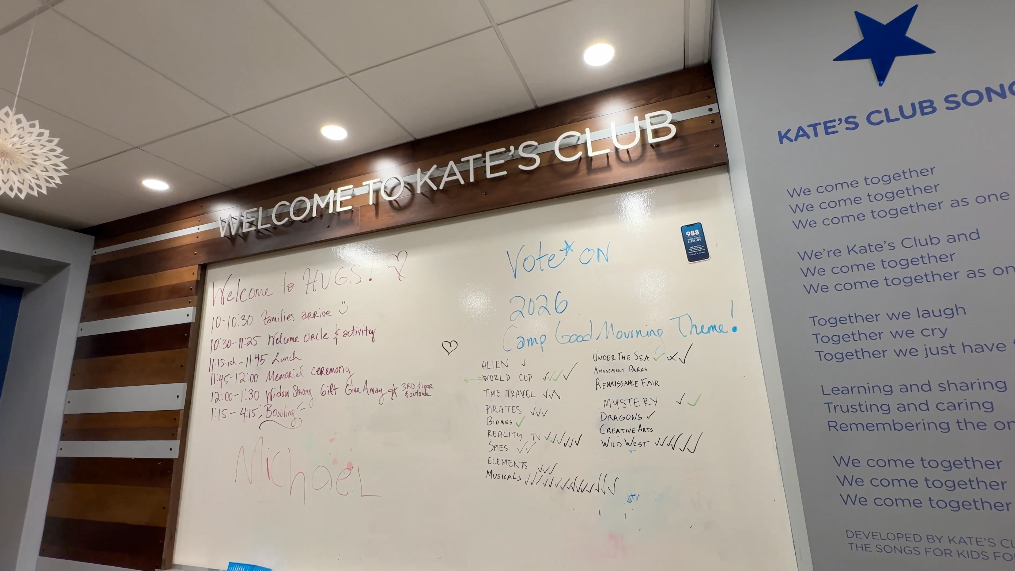 WELCOME TO KATE'S CLUB
Welcome to HUGS!
10-10:30 Families arrive
10:30-11:25 Welcome circle & activity
11:45 Lunch
11:45-12:00 Memorial ceremony
12:00-1:30 Strong Gift Give Away
1:15-4:15 Bowling
Michael
988
Vote* ON
2026
Camp Good Mourning Theme!
ALIEN ✓
WORLD CUP ✓✓✓
TIME TRAVEL ✓✓
PIRATES ✓✓✓
✓
REALITY TV ✓✓✓✓✓
SPIES ✓✓
ELEMENTS ✓✓
MUSICALS
UNDER THE SEA ✓✓✓
AMUSEMENT PARKS
RENAISSANCE FAIR
MYSTERY ✓✓
DRAGONS ✓
CREATIVE ARTS
WILD WEST ✓✓✓✓✓
KATE'S CLUB SONG
We come together
We come together
We come together as one
We're Kate's Club and
We come together
We come together as on
Together we laugh
Together we cry
Together we just have
Learning and sharing
Trusting and caring
Remembering the on
We come together
We come together
We come together
DEVELOPED BY KATE'S CL
THE SONGS FOR KIDS FO